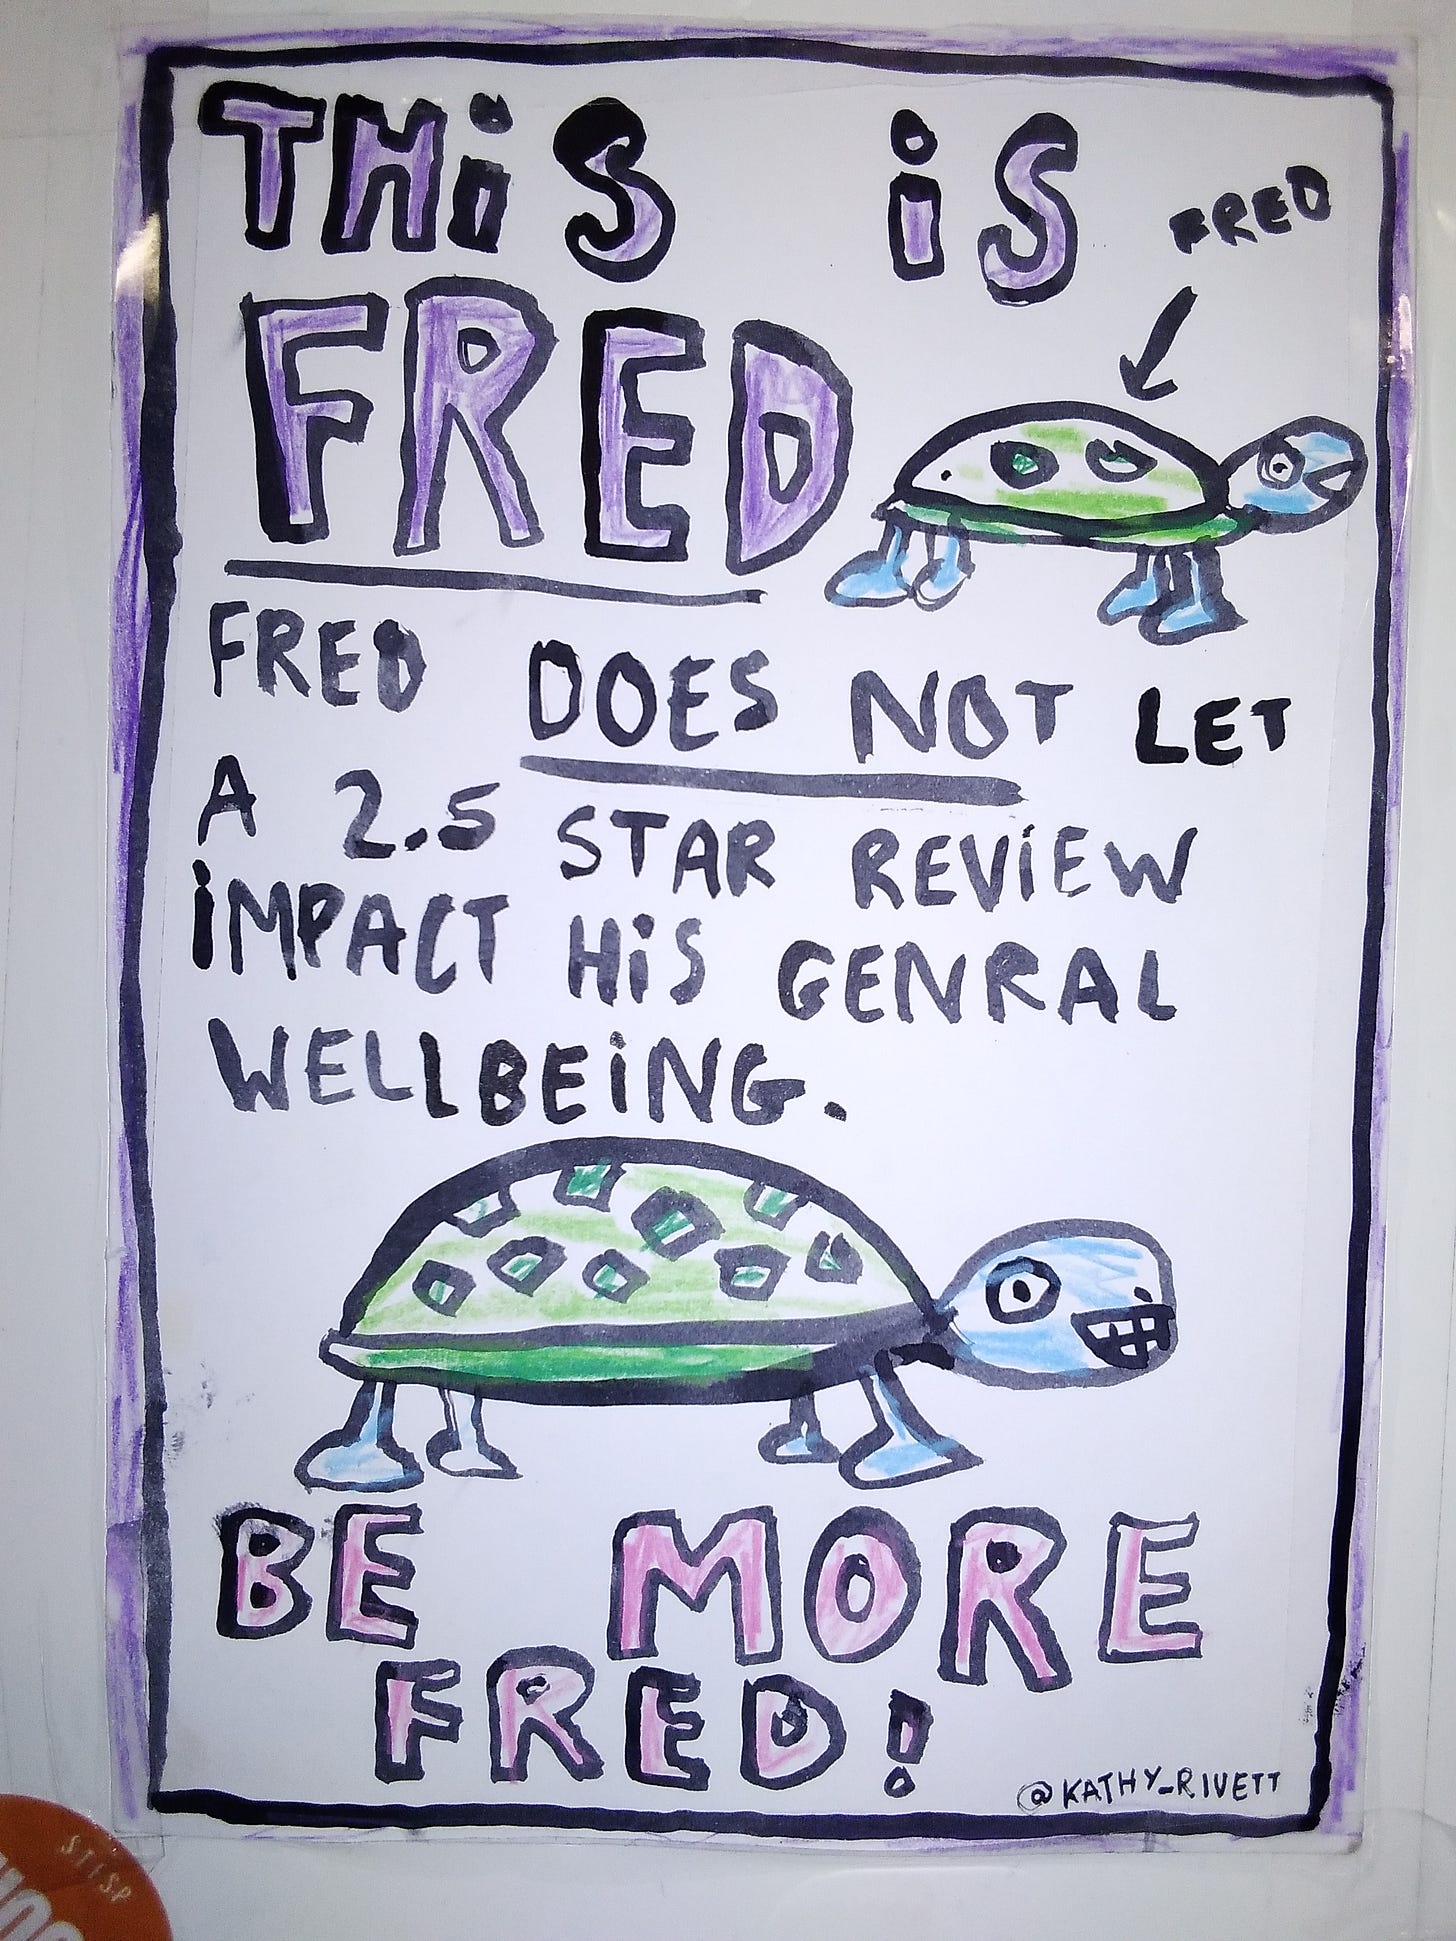 THiS iS
FRED
FRED
FRED DOES NOT LET
A 2.5 STAR REViEW
iMPACT HiS GENRAL
WELLBEiNG.
BE MORE
FRED!
@KATHY_RIVETT